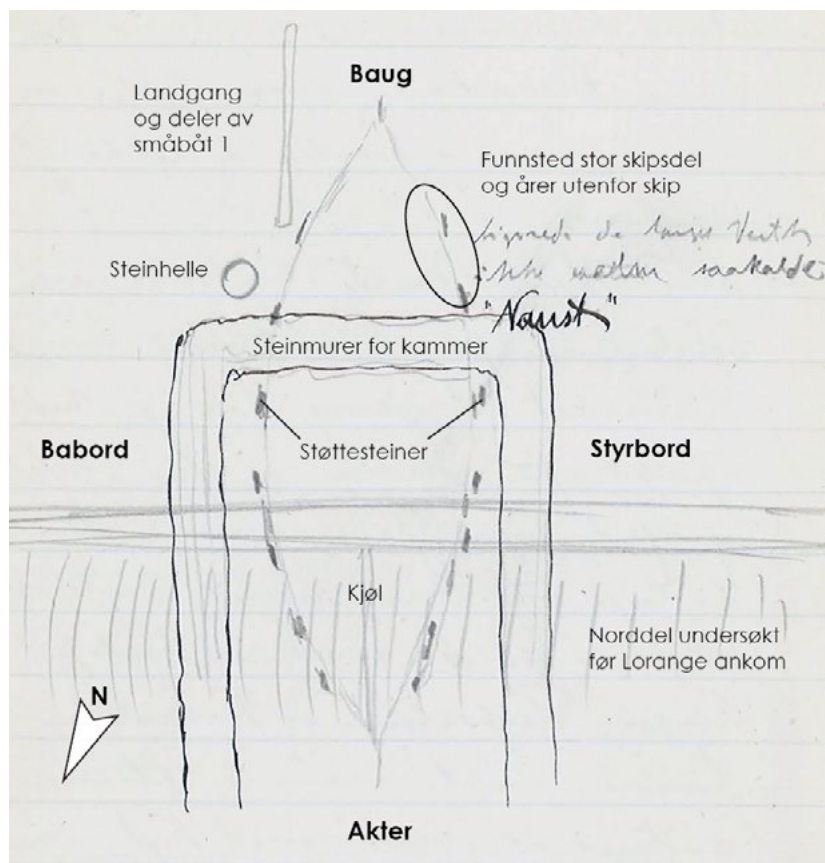 Baug
Landgang
og deler av
småbåt 1
Funnsted stor skipsdel
og årer utenfor skip
ikke
Steinhelle
"Naust"
Steinmurer for kammer
Babord
Støttesteiner
Styrbord
Kjøl
Norddel undersøkt
før Lorange ankom
N
Akter